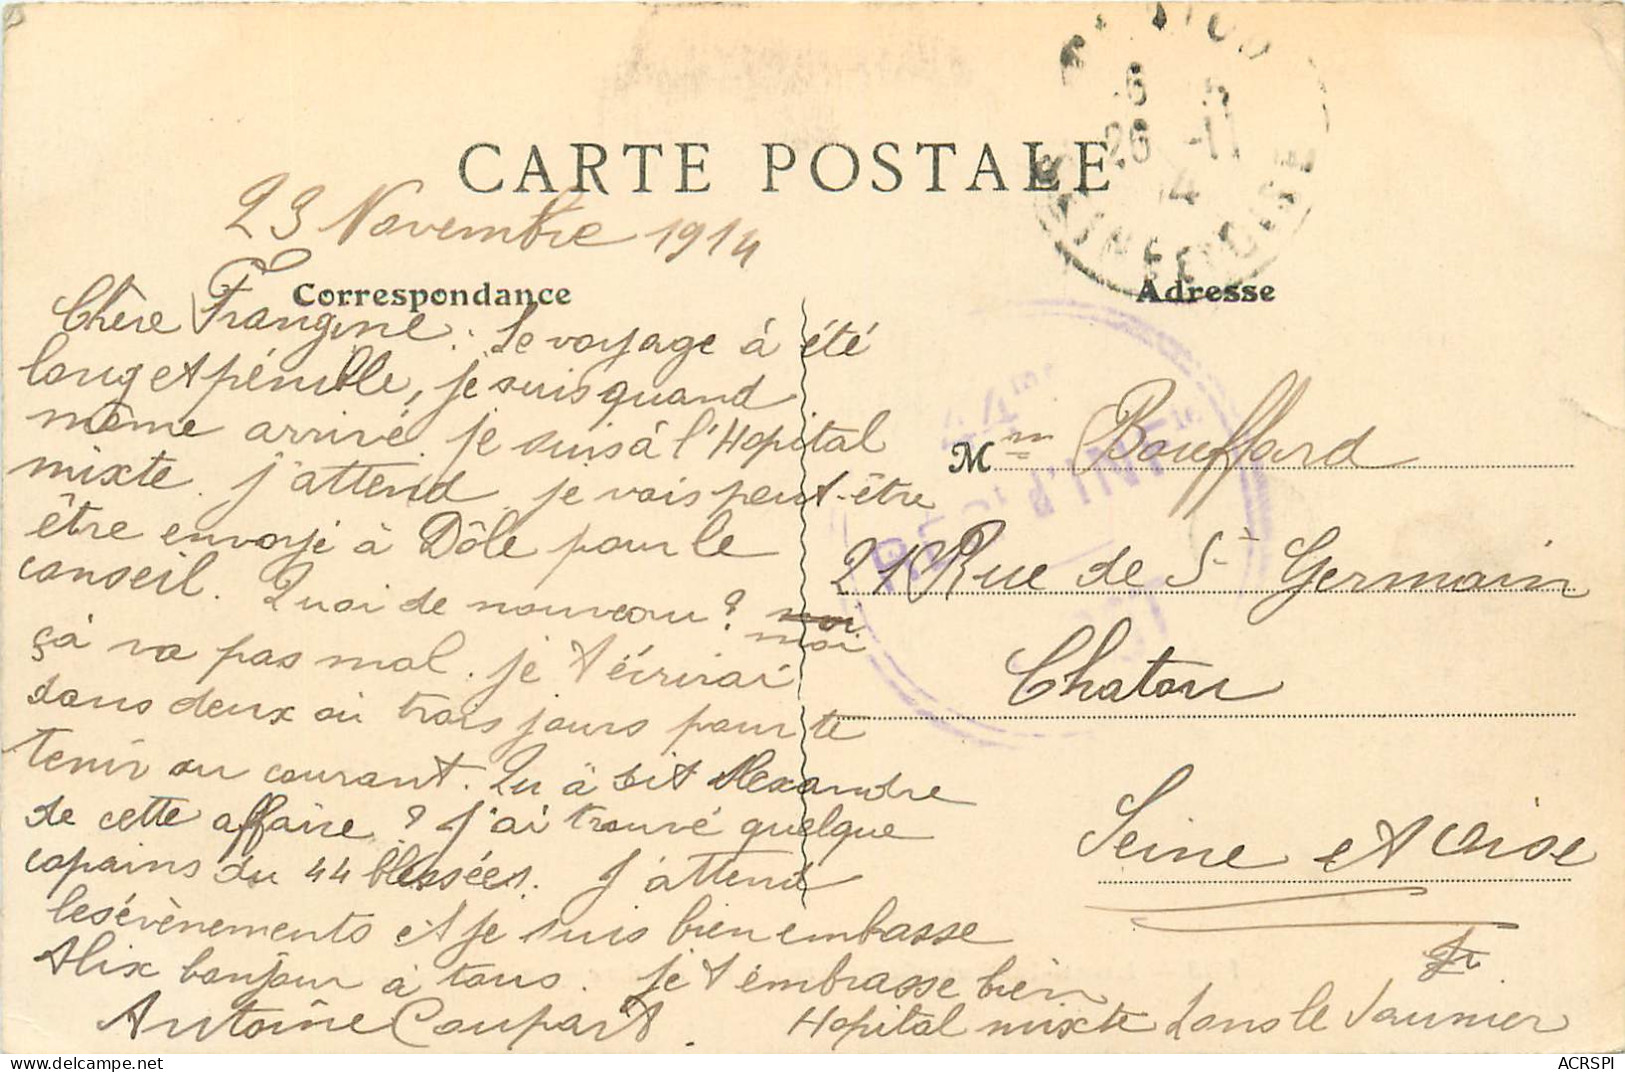 CARTE POSTALE
23 Novembre 1914
Correspondance
Chère Frangine. Le voyage à été
long et pénible, je suis quand
même arrivé. je suis à l'Hopital
mixte. j'attend je vais peut-être
être envoyé à Dôle pour le
conseil. Quoi de nouveau? moi
çà va pas mal. je t'écrirai
dans deux ou trois jours pour te
tenir au courant. Qu à dit Alexandre
de cette affaire? J'ai trouvé quelque
copains du 44 blessées. J'attend
les évènements et je suis bien
Alix bonjour à tous. je t'embrasse bien
Antoine Coupart.
Hopital mixte dans le
Adresse
Mme Bouffard
21 Rue de St Germain
Chatou
Seine et Oise
6
26 -11
14
SEINE-ET-OISE
44me
RÉGt d'INFie
ACRSPI